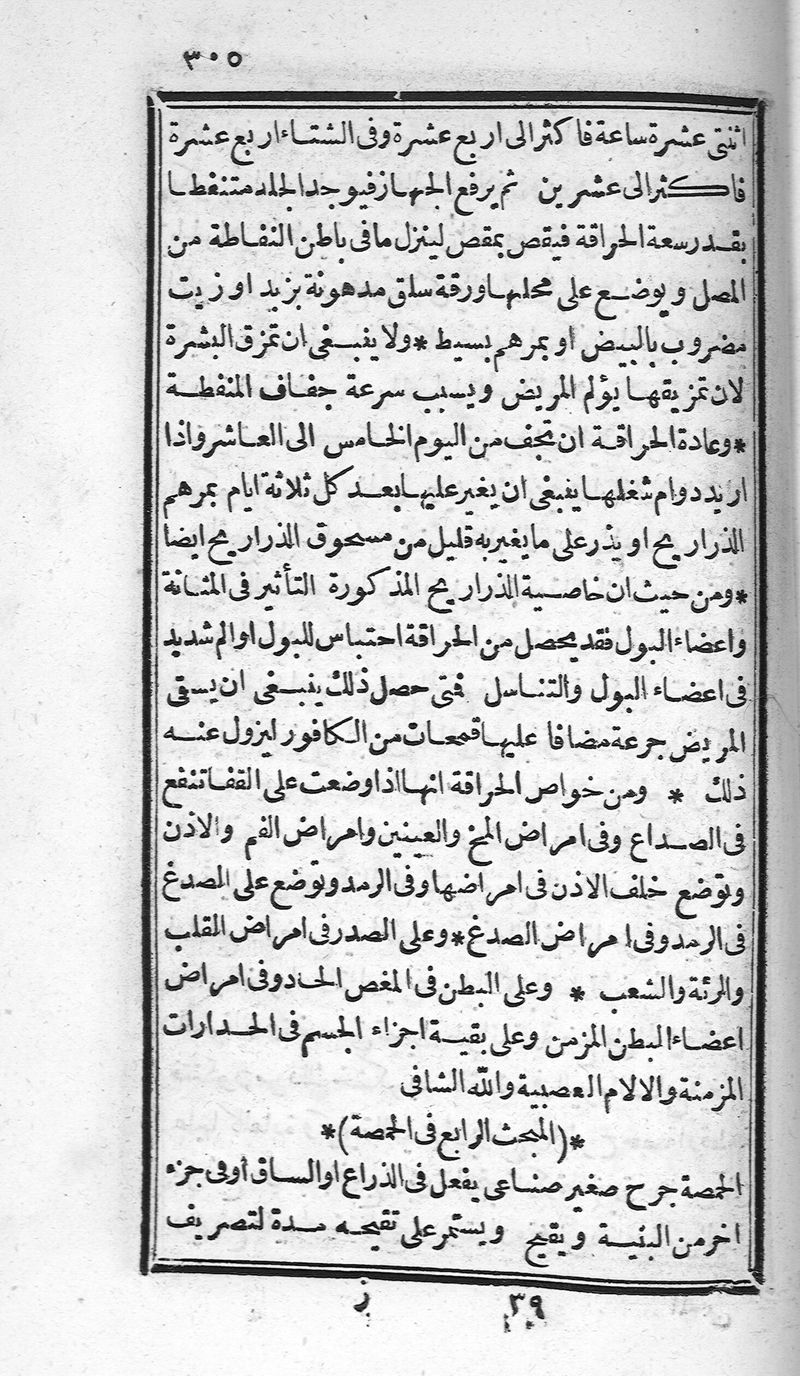 ٣٠٥
اثنتى عشرة ساعة فاكثر الى اربع عشرة وفى الشتاء اربع عشرة
فاكثر الى عشرين ثم يرفع الجهاز فيوجد الجلد متنفطا
بقدر سعة الحراقة فيقص بمقص لينزل ما فى باطن النفاطة من
المصل ويوضع على محلها ورقة سلق مدهونة بزبد او زيت
مضروب بالبيض او بمرهم بسيط * ولا ينبغى ان تمزق البشرة
لان تمزيقها يؤلم المريض ويسبب سرعة جفاف المنفطة
* وعادة الحراقة ان تجف من اليوم الخامس الى العاشر واذا
اريد دوام شغلها ينبغى ان يغير عليها بعد كل ثلاثة ايام بمرهم
الذراريح او يذر على ما يغير به قليل من مسحوق الذراريح ايضا
* ومن حيث ان خاصية الذراريح المذكورة التأثير فى المثانة
واعضاء البول فقد يحصل من الحراقة احتباس للبول او الم شديد
فى اعضاء البول والتناسل فمتى حصل ذلك ينبغى ان يسقى
المريض جرعة مضافا عليها قمعات من الكافور ليزول عنه
ذلك * ومن خواص الحراقة انها اذا وضعت على القفا تنفع
فى الصداع وفى امراض المخ والعينين وامراض الفم والاذن
وتوضع خلف الاذن فى امراضها وفى الرمد وتوضع على الصدغ
فى الرمد وفى امراض الصدغ * وعلى الصدر فى امراض القلب
والرئة والشعب * وعلى البطن فى المغص الحاد وفى امراض
اعضاء البطن المزمن وعلى بقية اجزاء الجسم فى الحدارات
المزمنة والالام العصبية والله الشافى
*(المبحث الرابع فى الحمصة)*
الحمصة جرح صغير صناعى يفعل فى الذراع او الساق أوفى جزء
اخر من البنية ويقيح ويستمر على تقيحه مدة لتصريف
٣٩ ز